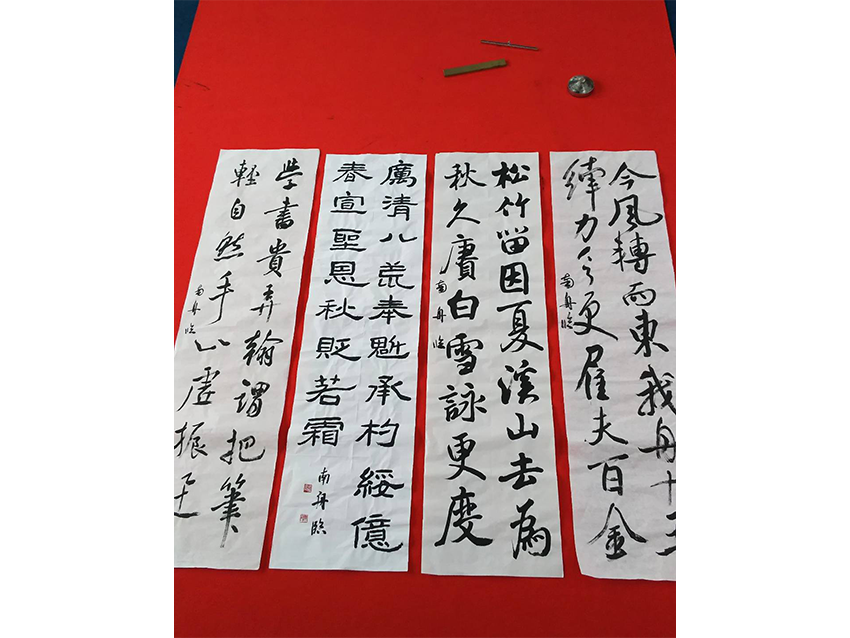 今風轉而東我舟十五
縴力乏更雇夫百金
南舟臨
松竹留因夏溪山去為
秋久賡白雪詠更度
南舟臨
厲清八荒奉魁承杓綏億
春宣聖恩秋貶若霜
南舟臨
學書貴弄翰謂把筆
輕自然手心虛振迅
南舟臨